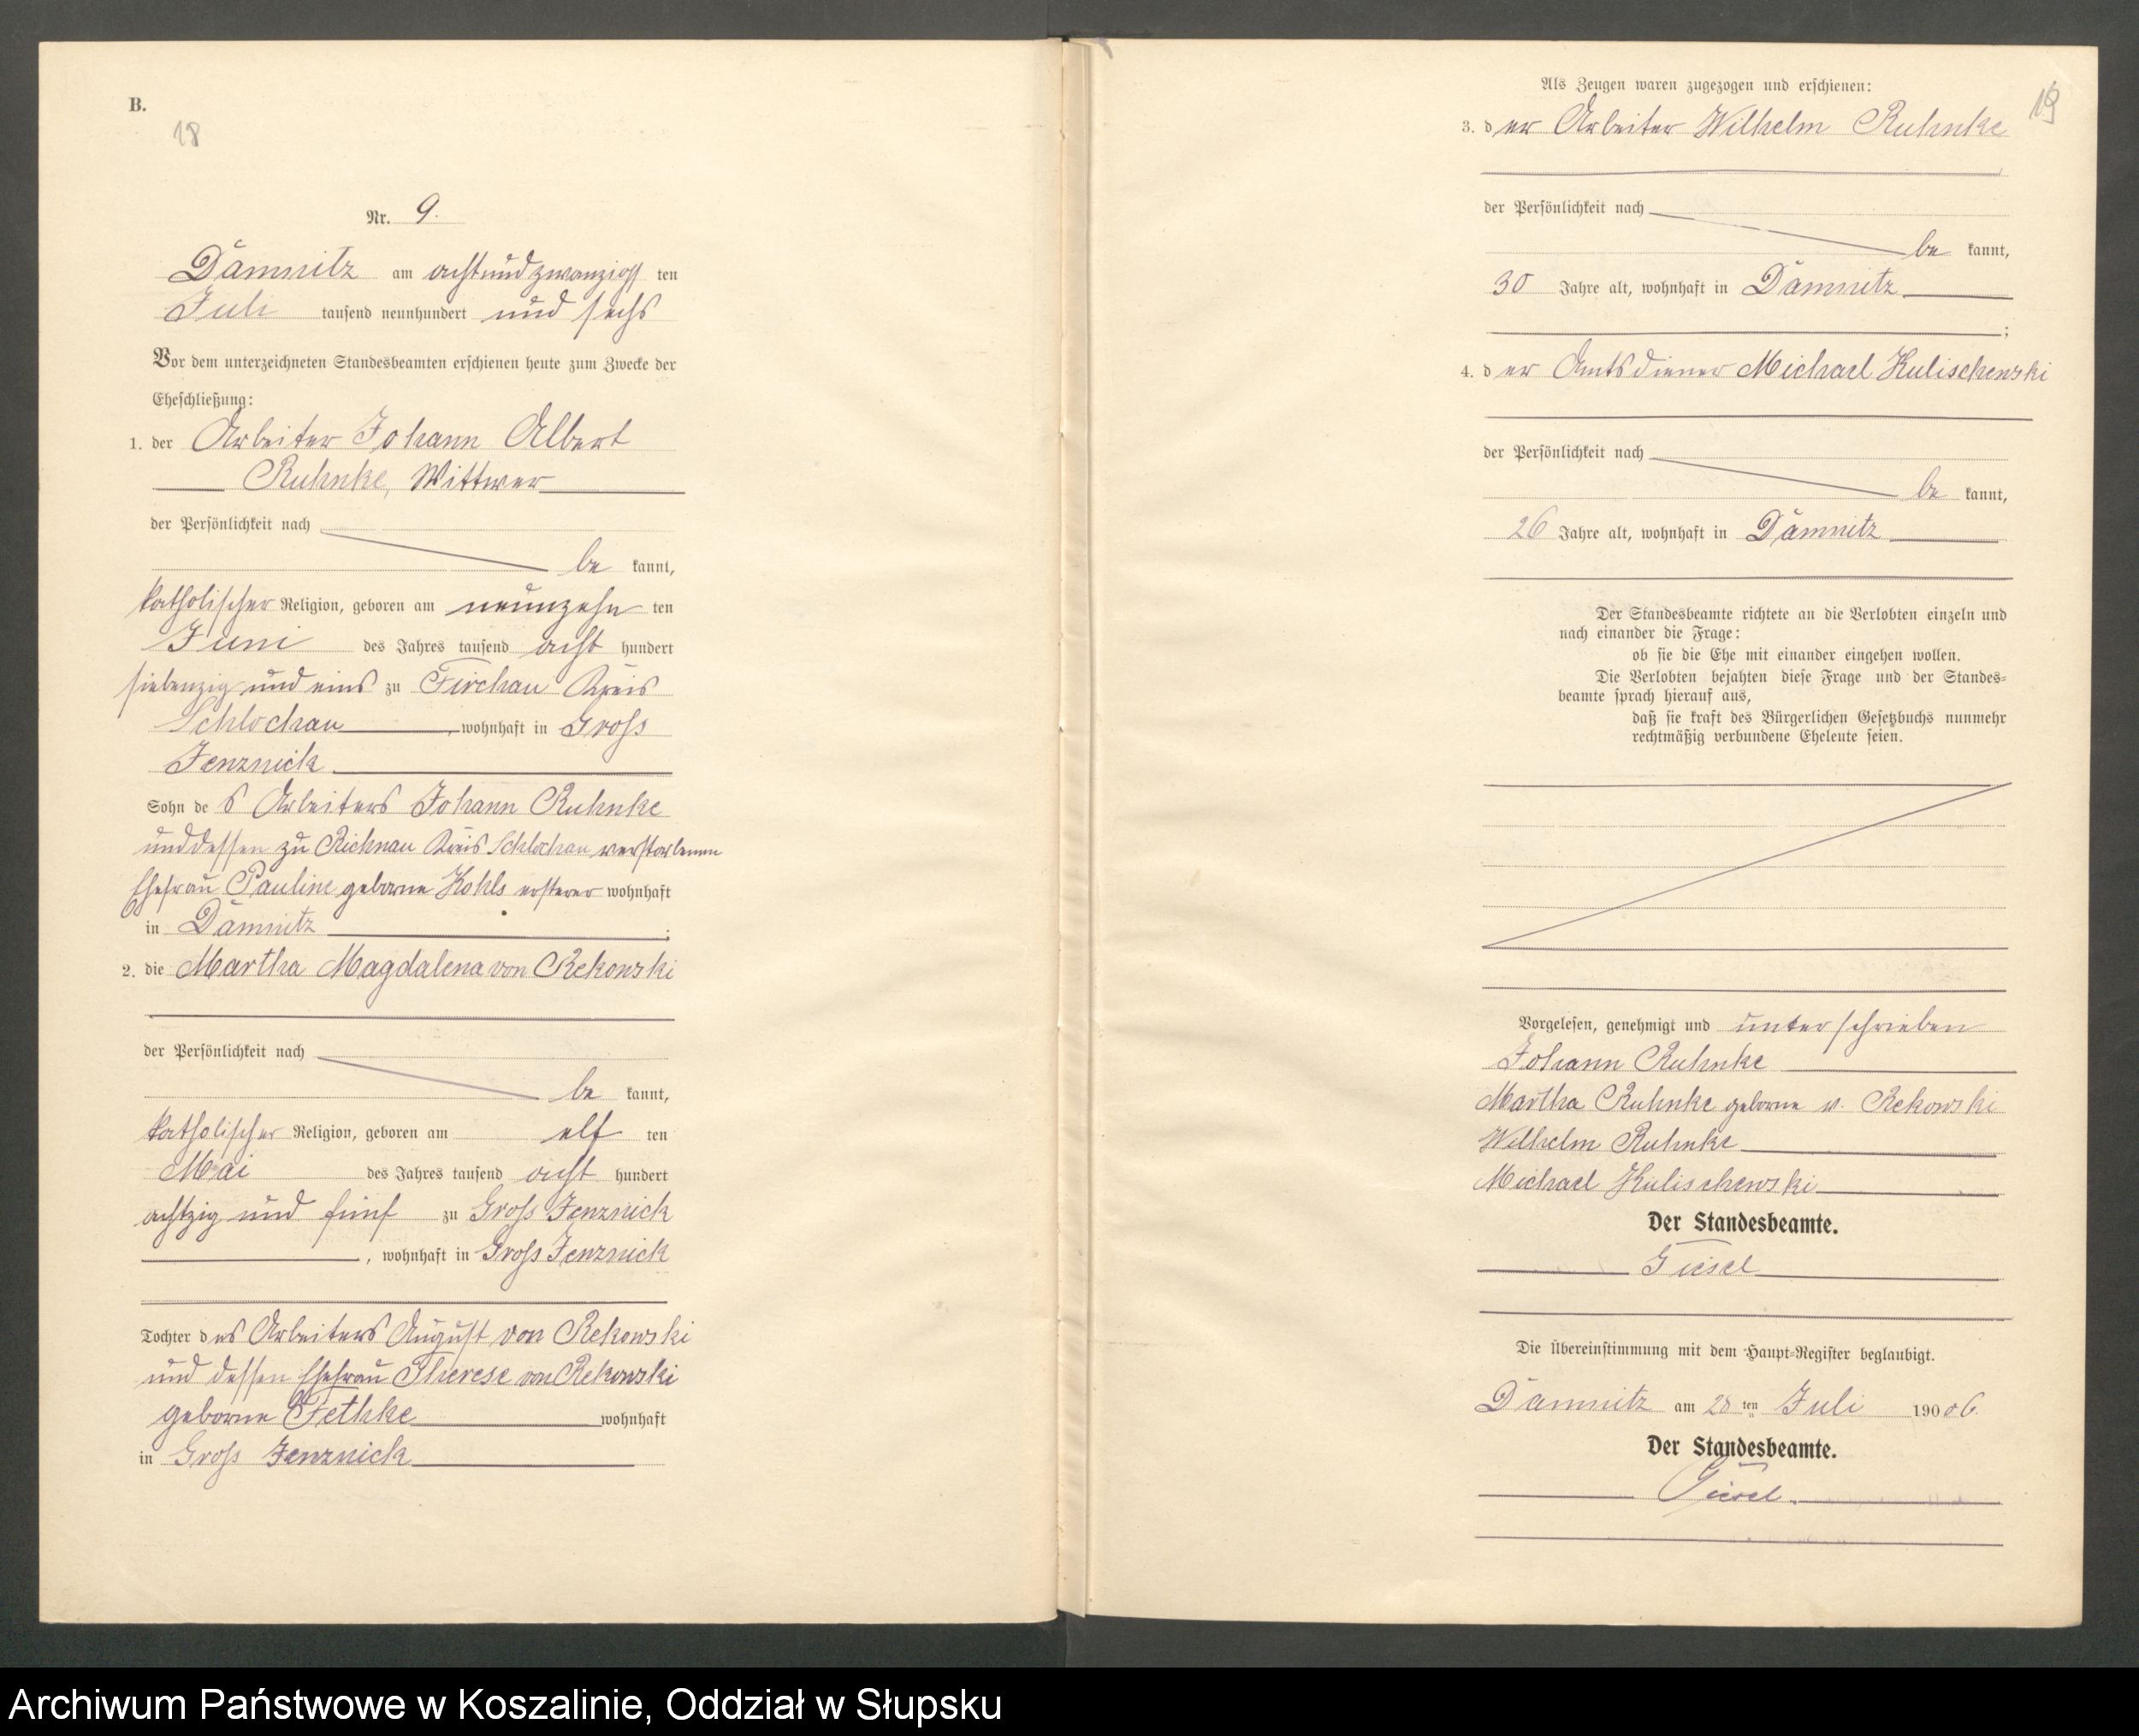 B.
18
Nr. 9.
Damnitz am achtundzwanzigsten
Juli tausend neunhundert und sechs
Vor dem unterzeichneten Standesbeamten erschienen heute zum Zwecke der
Eheschließung:
1. der Arbeiter Johann Albert
Ruhnke, Wittwer
der Persönlichkeit nach
be kannt,
katholischer Religion, geboren am neunzehn ten
Juni des Jahres tausend acht hundert
siebenzig und eins zu Firchau Kreis
Schlochau, wohnhaft in Gross
Jenznick
Sohn des Arbeiters Johann Ruhnke
und dessen zu Richnau Kreis Schlochau verstorbenen
Ehefrau Pauline geborne Kohls ersterer wohnhaft
in Damnitz ;
2. die Martha Magdalena von Rekowski
der Persönlichkeit nach
be kannt,
katholischer Religion, geboren am elf ten
Mai des Jahres tausend acht hundert
achtzig und fünf zu Gross Jenznick
, wohnhaft in Gross Jenznick
Tochter des Arbeiters August von Rekowski
und dessen Ehefrau Therese von Rekowski
geborne Fethke wohnhaft
in Gross Jenznick
19
Als Zeugen waren zugezogen und erschienen:
3. der Arbeiter Wilhelm Ruhnke
der Persönlichkeit nach
be kannt,
30 Jahre alt, wohnhaft in Damnitz
;
4. der Amtsdiener Michael Kulischewski
der Persönlichkeit nach
be kannt,
26 Jahre alt, wohnhaft in Damnitz
Der Standesbeamte richtete an die Verlobten einzeln und
nach einander die Frage:
ob sie die Ehe mit einander eingehen wollen.
Die Verlobten bejahten diese Frage und der Standes=
beamte sprach hierauf aus,
daß sie kraft des Bürgerlichen Gesetzbuchs nunmehr
rechtmäßig verbundene Eheleute seien.
Vorgelesen, genehmigt und unterschrieben
Johann Ruhnke
Martha Ruhnke geborne v. Rekowski
Wilhelm Ruhnke
Michael Kulischewski
Der Standesbeamte.
Giesel
Die Übereinstimmung mit dem Haupt=Register beglaubigt.
Damnitz am 28 ten Juli 190 06.
Der Standesbeamte.
Giesel.
Archiwum Państwowe w Koszalinie, Oddział w Słupsku